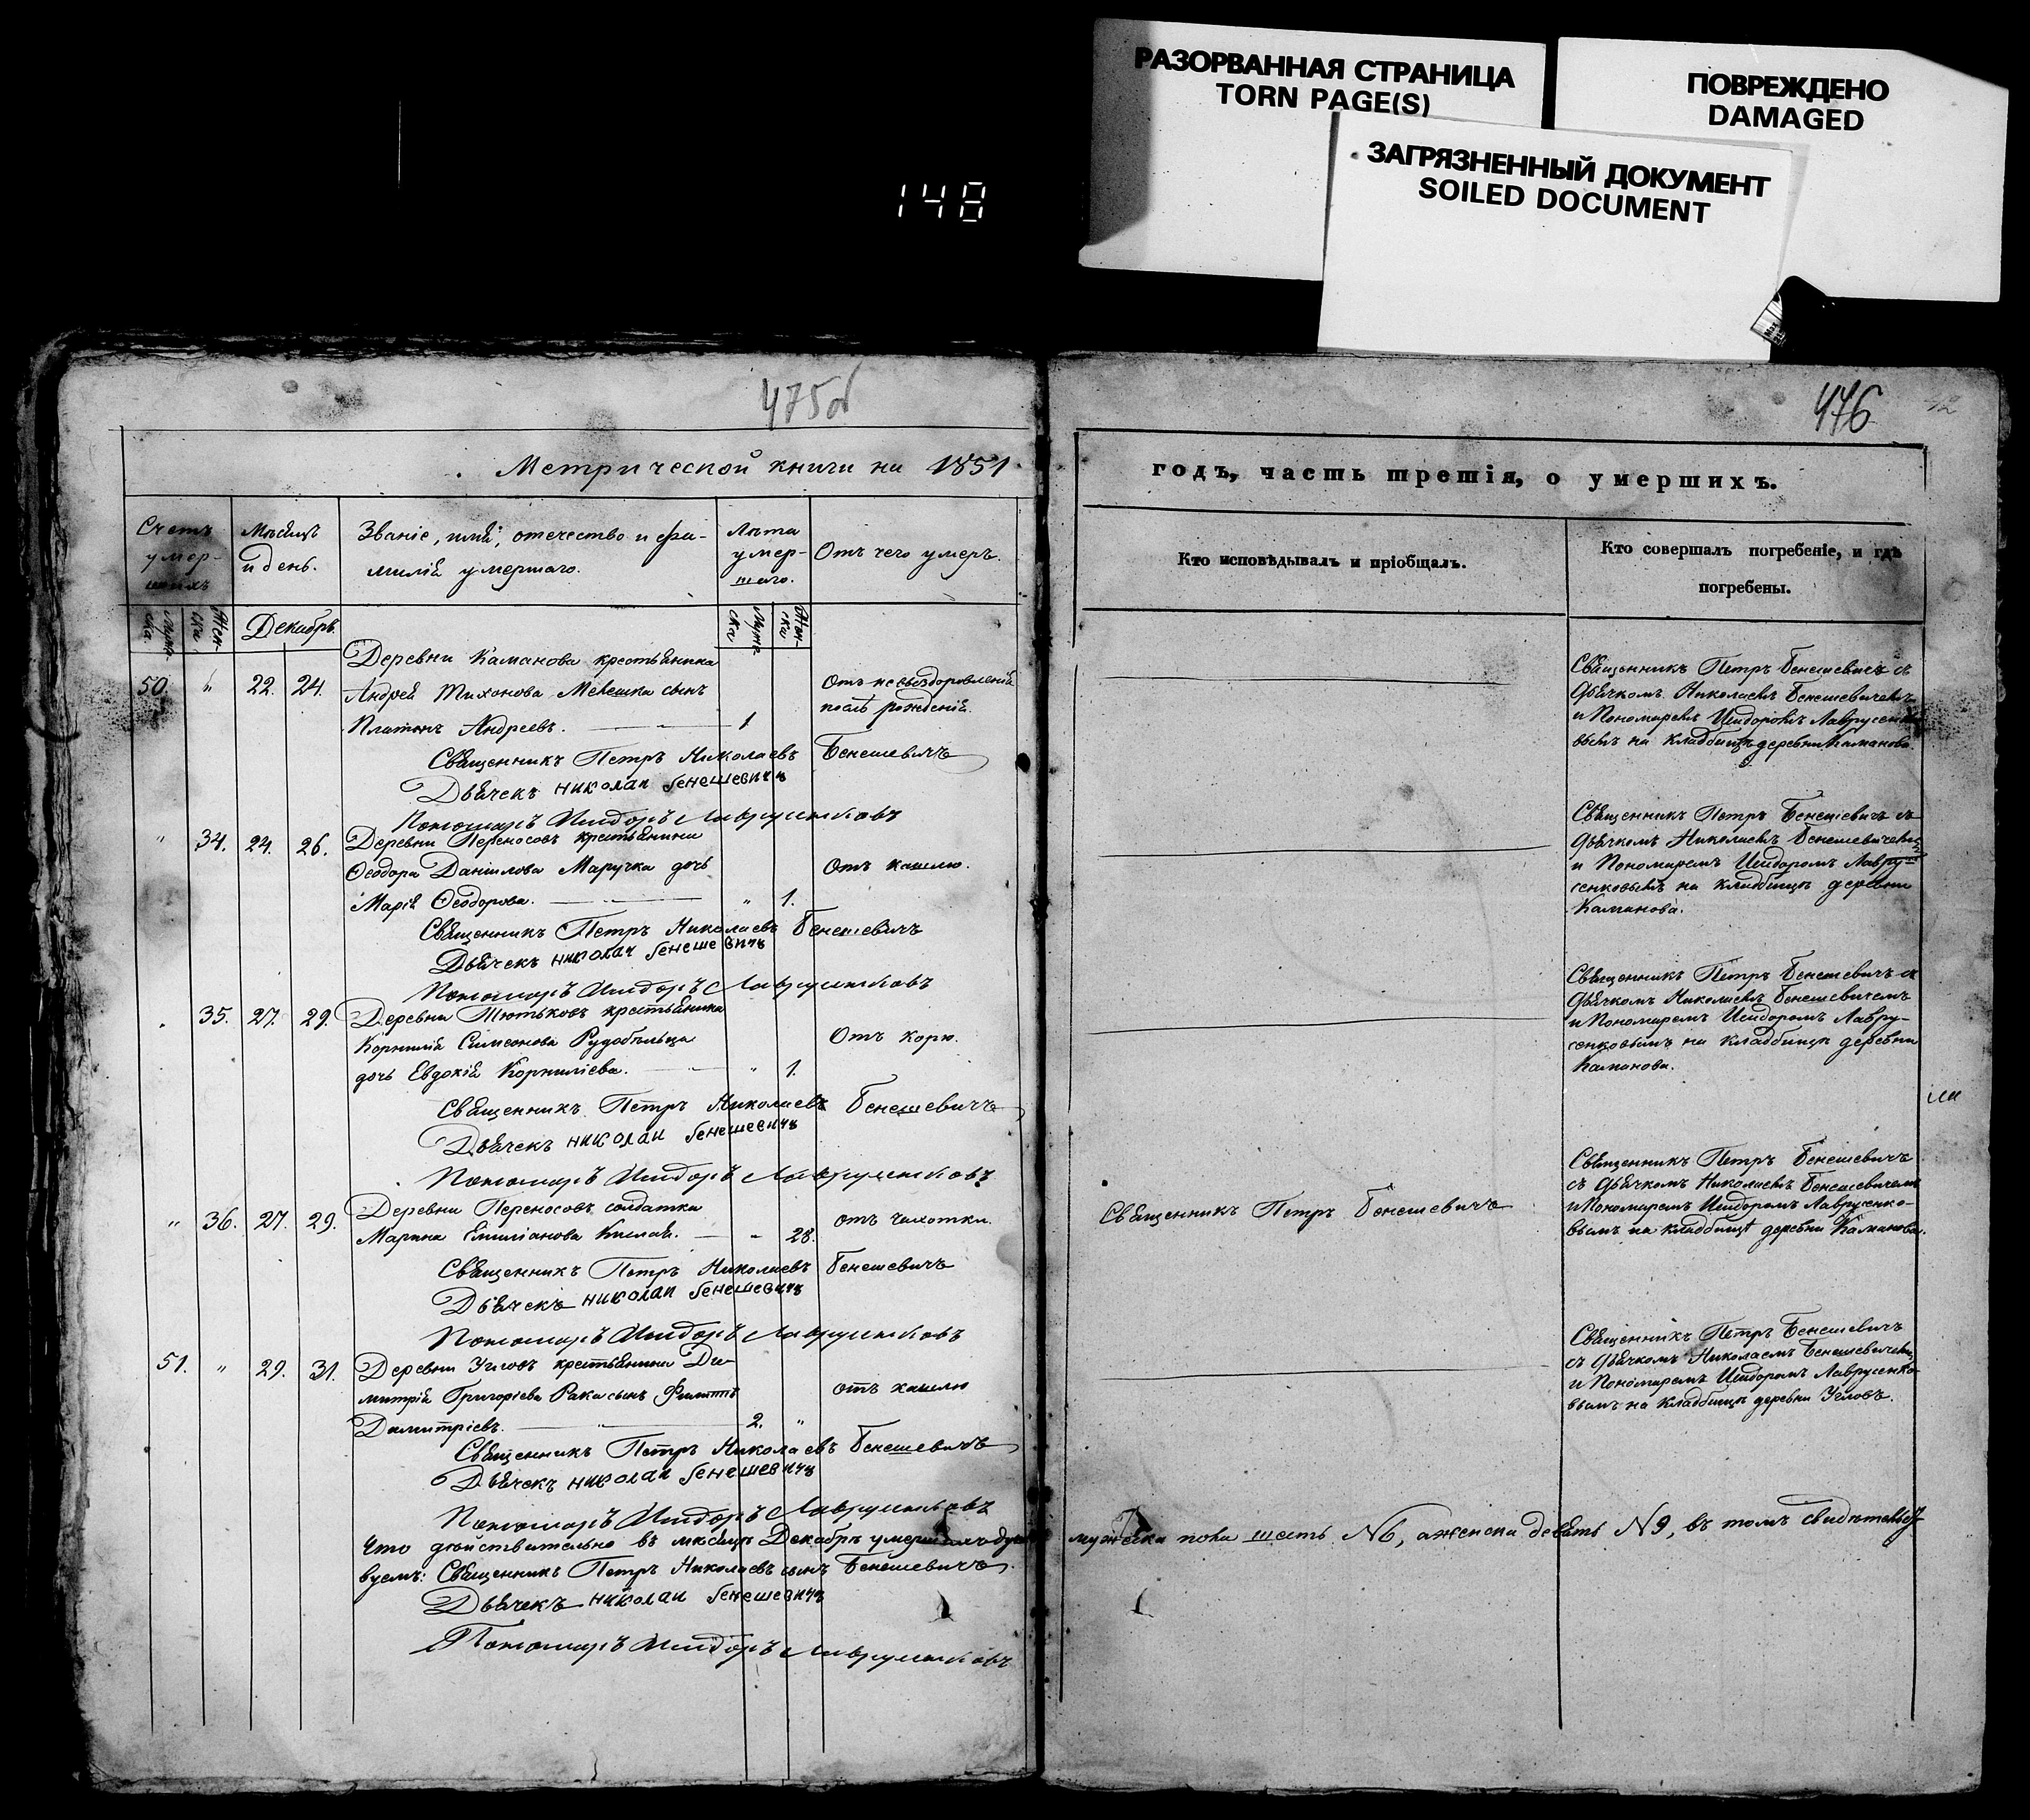 РАЗОРВАННАЯ СТРАНИЦА
TORN PAGE(S)
ПОВРЕЖДЕНО
DAMAGED
ЗАГРЯЗНЕННЫЙ ДОКУМЕНТ
SOILED DOCUMENT
148
475об
Метрической книги на 1851
Счетъ умер-шихъ
Мѣсяцъ и день.
Званіе, имя, отечество и фа-
милія умершаго.
Лѣта умер-шаго.
Отъ чего умеръ.
Муже-ска
Жен-ски.
Декабрь.
Муже-ска
Жен-ски
Деревни Каманова крестьянина
50. " 22. 24. Андрея Тихонова Мелешка сынъ
Платонъ Андреевъ. 1
Отъ невыздоровленія
послѣ рожденія.
Священникъ Петръ Николаевъ Бенешевичъ
Дьячекъ николаи бенешевичъ
Пономаръ Исидоръ Лаврусенковъ
" 34. 24. 26. Деревни Переносовъ крестьянина
Ѳеодора Данілова Маручка дочь Отъ кашлю.
Марія Ѳеодорова. " 1.
Священникъ Петръ Николаевъ Бенешевичъ
Дьячекъ николаи бенешевичъ
Пономаръ Исидоръ Лаврусенковъ
35. 27. 29. Деревни Тютьковъ крестьянина
Корнилія Симеонова Рудобѣльца Отъ корю.
дочь Евдокія Корниліева. " 1.
Священникъ Петръ Николаевъ Бенешевичъ
Дьячекъ николаи бенешевичъ
Пономаръ Исидоръ Лаврусенковъ
" 36. 27. 29. Деревни Переносовъ солдатка
Марина Емиліанова Кислая. " 28. отъ чахотки.
Священникъ Петръ Николаевъ Бенешевичъ
Дьячекъ николаи бенешевичъ
Пономаръ Исидоръ Лаврусенковъ
51. " 29. 31. Деревни Угловъ крестьянина Ди-
митрія Григоріева Рака сынъ Филиппъ отъ кашлю
Димитріевъ. 2. "
Священникъ Петръ Николаевъ Бенешевичъ
Дьячекъ николаи бенешевичъ
Пономаръ Исидоръ Лаврусенковъ
Что дѣйствительно въ мѣсяцѣ Декабрѣ умершихъ
вуемъ: Священникъ Петръ Николаевъ сынъ Бенешевичъ.
Дьячекъ николаи бенешевичъ
Пономаръ Исидоръ Лаврусенковъ
476
42
годъ, часть третія, о умершихъ.
Кто исповѣдывалъ и пріобщалъ.
Кто совершалъ погребеніе, и гдѣ
погребены.
Священникъ Петръ Бенешевичъ съ
дьячкомъ Николаемъ Бенешевичемъ
и Пономаремъ Исидоромъ Лаврусенко
вымъ на кладбищѣ деревни Каманова.
Священникъ Петръ Бенешевичъ съ
дьячкомъ Николаемъ Бенешевичемъ
и Пономаремъ Исидоромъ Лавру-
сенковымъ на кладбищѣ деревни
Каманова.
Священникъ Петръ Бенешевичъ съ
дьячкомъ Николаемъ Бенешевичемъ
и Пономаремъ Исидоромъ Лавру-
сенковымъ на кладбищѣ деревни
Каманова.
Священникъ Петръ Бенешевичъ
Священникъ Петръ Бенешевичъ
съ дьячкомъ Николаемъ Бенешевичемъ
и Пономаремъ Исидоромъ Лаврусенко-
вымъ на кладбищѣ деревни Каманова.
Священникъ Петръ Бенешевичъ
съ дьячкомъ Николаемъ Бенешевичемъ
и Пономаремъ Исидоромъ Лаврусенко-
вымъ на кладбищѣ деревни Угловъ.
мужеска пола шесть N6, а женска девять N9, въ томъ свидѣтельст